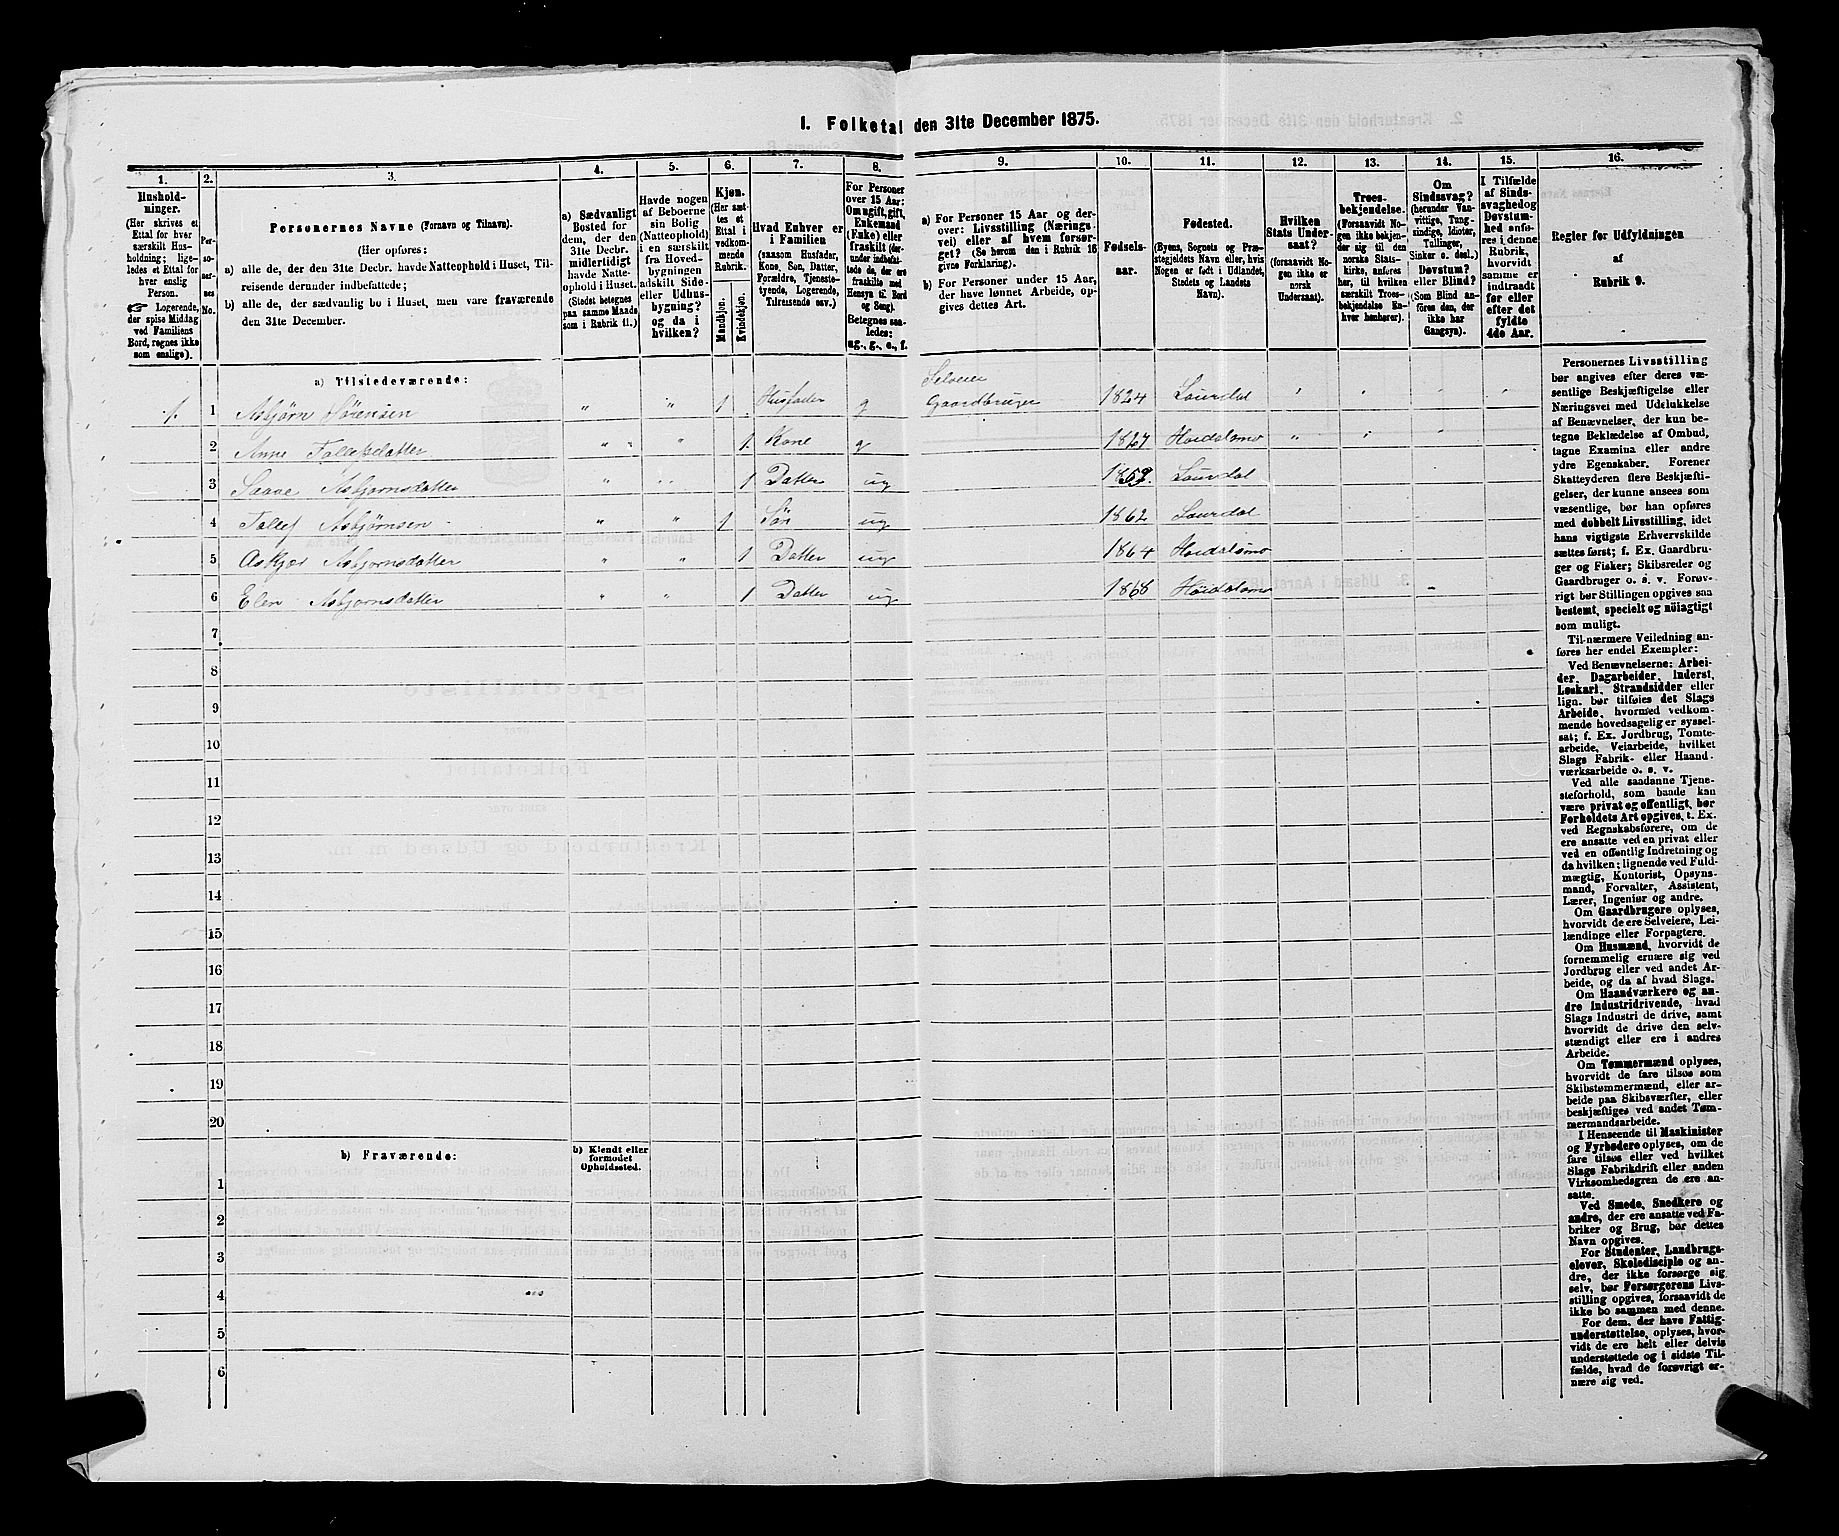 1. Folketal den 31te December 1875.
1. 2. 3. 4. 5. 6. 7. 8. 9. 10. 11. 12. 13. 14. 15. 16.
Hushold-
ninger.
(Her skrives et
Ettal for hver
særskilt Hus-
holdning; lige-
ledes et Ettal for
hver enslig
Person.
☞ Logerende,
der spise Middag
ved Familiens
Bord, regnes ikke
som enslige).
Per-
so-
ner-
nes
No.
Personernes Navne (Fornavn og Tilnavn).
(Her opføres:
a) alle de, der den 31te Decbr. havde Natteophold i Huset, Til-
reisende derunder indbefattede;
b) alle de, der sædvanlig bo i Huset, men vare fraværende
den 31te December.
a) Sædvanligt
Bosted for
dem, der den
31te Decbr.
midlertidigt
havde Natte-
ophold i Huset.
(Stedet betegnes
paa samme Maade
som i Rubrik 11.)
Havde nogen
af Beboerne
sin Bolig
(Natteophold)
i en særskilt
fra Hoved-
bygningen
adskilt Side-
eller Udhus-
bygning?
og da i
hvilken?
Kjøn.
(Her sæt-
tes et
Ettal i
vedkom-
mende
Rubrik.
Mandkjøn.
Kvindekjøn.
Hvad Enhver er
i Familien
(saasom Husfader,
Kone, Søn, Datter,
Forældre, Tjeneste-
tyende, Logerende,
Tilreisende osv.)
For Personer
over 15 Aar:
Om ugift, gift,
Enkemand
(Enke) eller
fraskilt (her-
under indbefat-
tede de, der ere
fraskilte med
Hensyn til Bord
og Seng).
Betegnes saa-
ledes:
ug., g., e., f.
a) For Personer 15 Aar og der-
over: Livsstilling (Nærings-
vei) eller af hvem forsør-
get? (Se herom den i Rubrik 16
givne Forklaring).
b) For Personer under 15 Aar,
der have lønnet Arbeide, op-
gives dettes Art.
Fødsels-
aar.
Fødested.
(Byens, Sognets og Præ-
stegjeldets Navn eller, hvis
Nogen er født i Udlandet,
Stedets og Landets
Navn).
Hvilken
Stats Under-
saat?
(forsaavidt No-
gen ikke er
norsk
Undersaat).
Troes-
bekjendelse.
(Forsaavidt No-
gen ikke bekjen-
der sig til den
norske Stats-
kirke, anføres
her, til hvilken
særskilt Troes-
bekjendelse En-
hver henhører).
Om
Sindssvag?
(herunder Van-
vittige, Tung-
sindige, Idioter,
Tullinger,
Sinker o. desl.)
Døvstum?
eller Blind?
(Som Blind an-
føres den, der
ikke har
Gangsyn).
I Tilfælde
af Sinds-
svaghed og
Døvstum-
hed anfø-
res i denne
Rubrik,
hvorvidt
samme er
indtraadt
før eller
efter det
fyldte
4de Aar.
Regler for Udfyldningen
af
Rubrik 9.
a) Tilstedeværende:
1. 1 Asbjørn Sørensen " " 1 Husfader g Selveier Gaardbruger 1824 Laurdal
2 Anne Tallefsdatter " " " 1. Kone g 1827 Høidalsmo
3 Saave Asbjørnsdatter " " 1 Datter ug 1859. Laurdal
4 Tallef Asbjørnsen " " 1 Søn ug 1862 Laurdal
5 Askjer Asbjørnsdatter " " 1 Datter ug 1864 Høidalsmo
6 Elen Asbjørnsdatter " " 1 Datter ug 1868 Høidalsmo
7
8
9
10
11
12
13
14
15
16
17
18
19
20
b) Fraværende:
b) Kjendt eller
formodet
Opholdssted.
1
2
3
4
5
6
Personernes Livsstilling
bør angives efter deres væ-
sentlige Beskjæftigelse eller
Næringsvei med Udelukkelse
af Benævnelser, der kun be-
tegne Beklædelse af Ombud,
tagne Examina eller andre
ydre Egenskaber. Forener
Skatteyderen flere Beskjæfti-
gelser, der kunne ansees som
væsentlige, bør han opføres
med dobbelt Livsstilling, idet
hans vigtigste Erhvervskilde
sættes først; f. Ex. Gaardbru-
ger og Fisker; Skibsreder og
Gaardbruger o. s. v. Forøv-
rigt bør Stillingen opgives saa
bestemt, specielt og nøiagtigt
som muligt.
Til nærmere Veiledning an-
føres her endel Exempler:
Ved Benævnelserne: Arbei-
der, Dagarbeider, Inderst,
Løskarl, Strandsidder eller
lign. bør tilføies det Slags
Arbeide, hvormed vedkom-
mende hovedsagelig er syssel-
sat; f. Ex. Jordbrug, Tomte-
arbeide, Veiarbeide, hvilket
Slags Fabrik- eller Haand-
værksarbeide o. s. v.
Ved alle saadanne Tjene-
steforhold, som baade kan
være privat og offentligt, bør
Forholdets Art opgives, t. Ex.
ved Regnskabsførere, om de
ere ansatte ved en privat eller
ved en offentlig Indretning og
da hvilken; lignende ved Fuld-
mægtig, Kontorist, Opsyns-
mand, Forvalter, Assistent,
Lærer, Ingeniør og andre.
Om Gaardbrugere oplyses,
hvorvidt de ere Selveiere, Lei-
lændinge eller Forpagtere.
Om Husmænd, hvorvidt de
fornemmelig ernære sig ved
Jordbrug eller ved andet Ar-
beide, og da af hvad Slags.
Om Haandværkere og an-
dre Industridrivende, hvad
Slags Industri de drive, samt
hvorvidt de drive den selv-
stændigt eller ere i andres
Arbeide.
Om Tømmermænd oplyses,
hvorvidt de fare tilsøs som
Skibstømmermænd, eller ar-
beide paa Skibsværfter, eller
beskjæftiges ved andet Tøm-
mermandsarbeide.
I Henseende til Maskinister
og Fyrbødere oplyses, om de
fare tilsøs eller ved hvilket
Slags Fabrikdrift eller anden
Virksomhedsgren de ere an-
satte.
Ved Smede, Snedkere og
andre, der ere ansatte ved Fa-
briker og Brug, bør dettes
Navn opgives.
For Studenter, Landbrugs-
elever, Skoledisciple og an-
dre, der ikke forsørge sig
selv, bør Forsørgerens Livs-
stilling opgives, forsaavidt de
ikke bo sammen med denne.
For dem, der have Fattig-
understøttelse, oplyses, hvor-
vidt de ere helt eller delvis
understøttede og i sidste Til-
fælde, hvad de forøvrigt er-
nære sig ved.